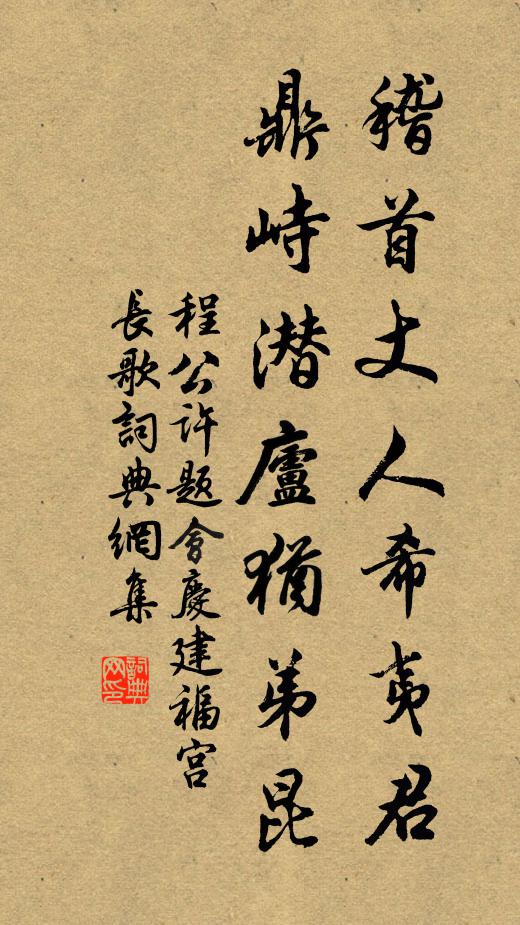 稽首丈人希夷君
鼎峙潜廬猶弟昆
程公许題會慶建福宫
長歌詞典網集
詞典網印